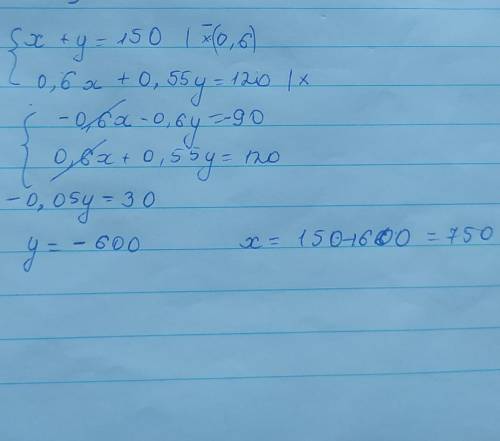 x + y = 150 | ×(-0,6)
0,6x + 0,55y = 120 | ×
-0,6x - 0,6y = -90
0,6x + 0,55y = 120
-0,05y = 30
y = -600 x = 150+600 = 750